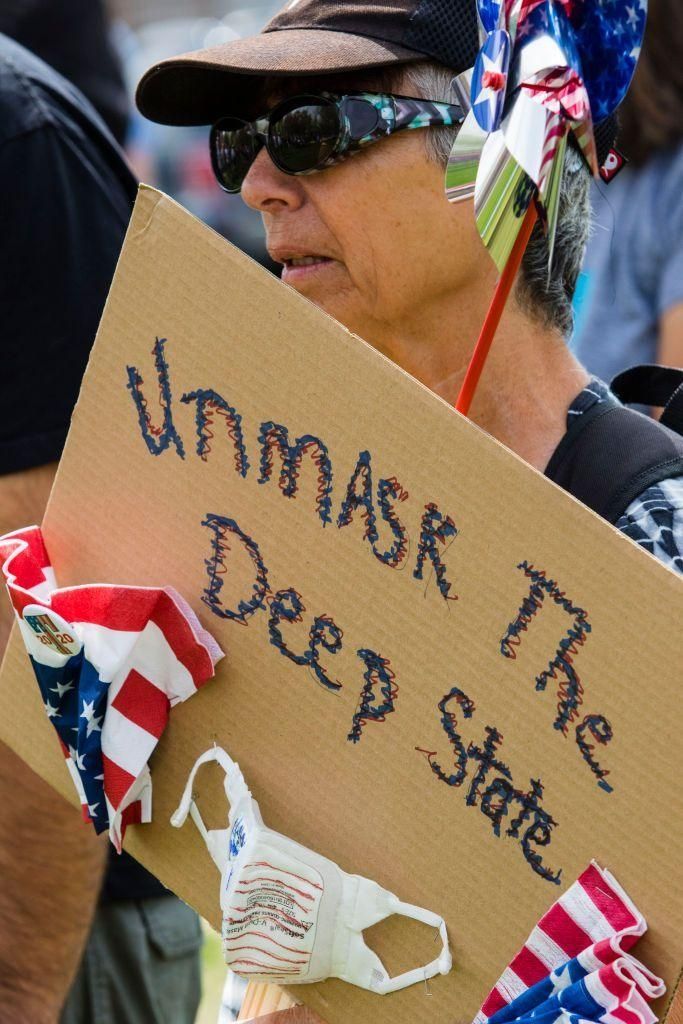 Unmask The
Deep State
2020